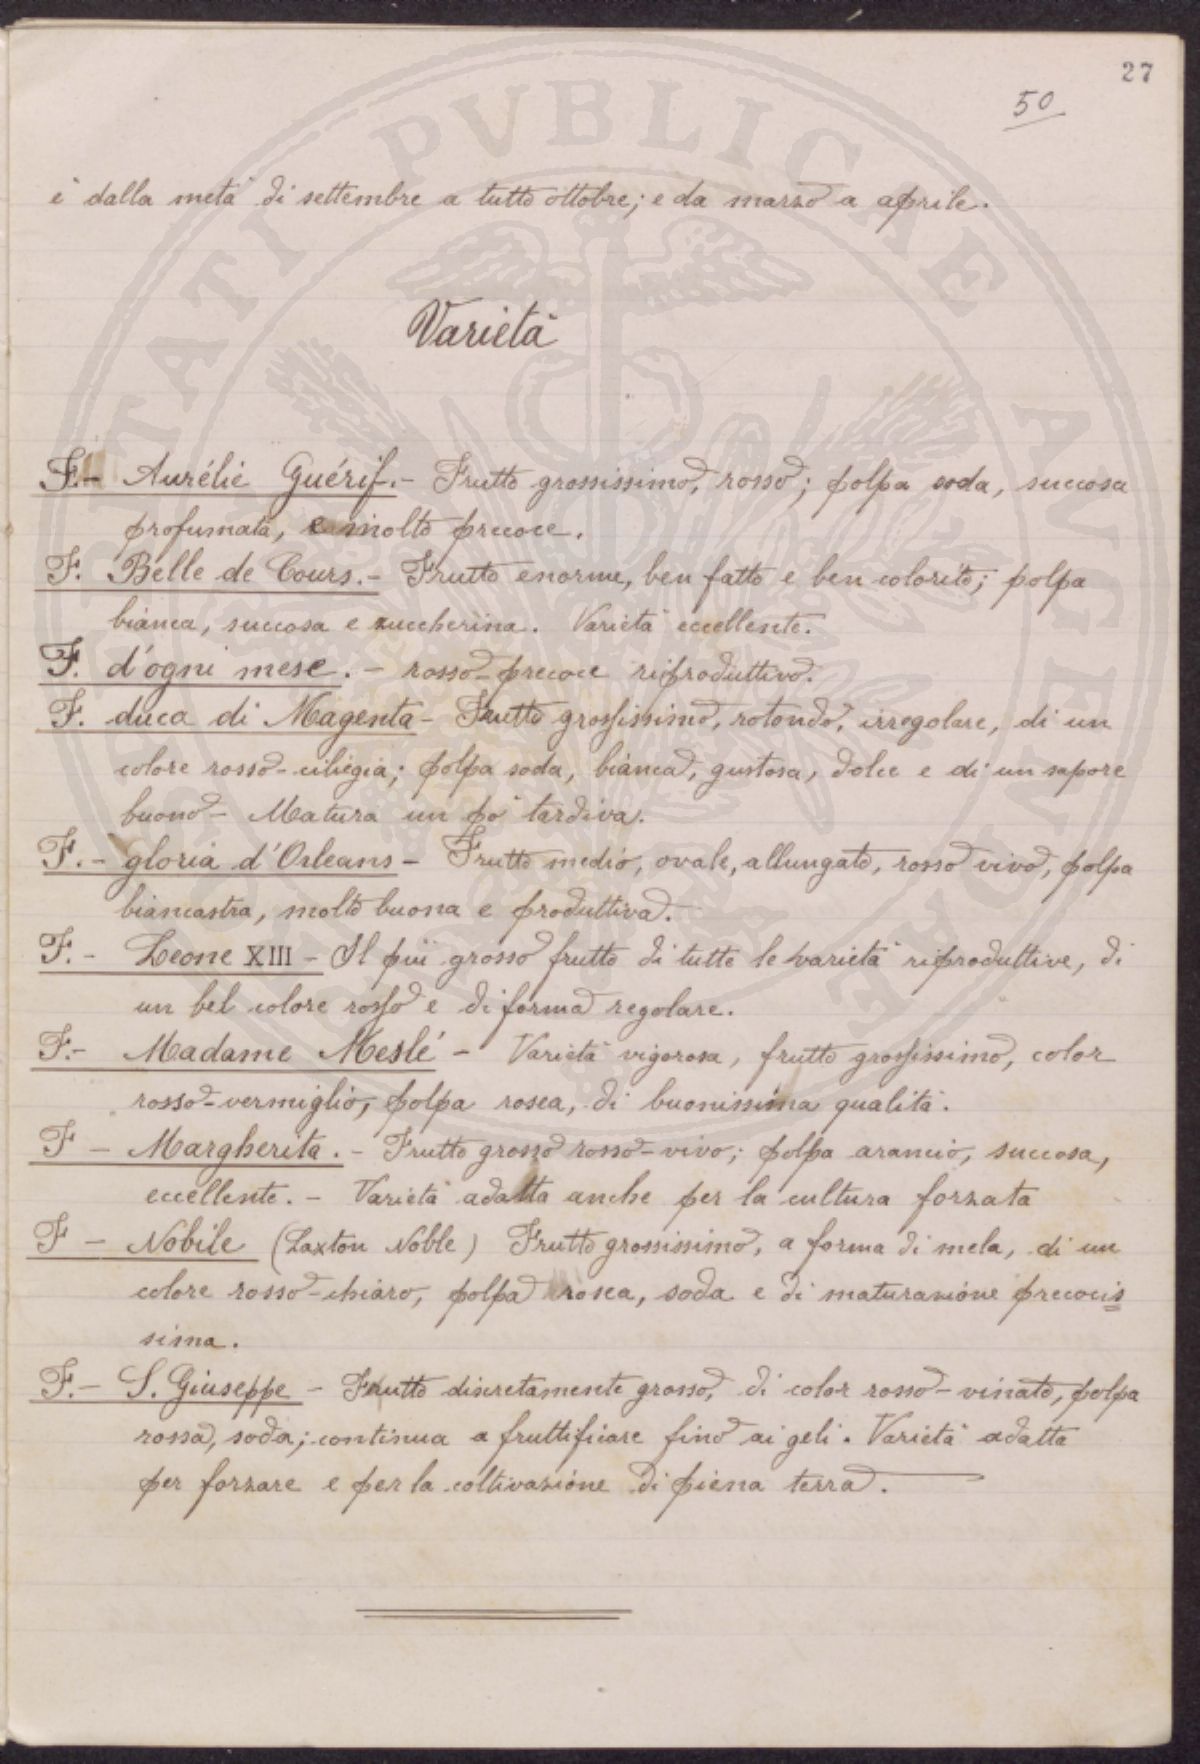 27
50
è dalla metà di settembre a tutto ottobre; e da marzo a aprile.
Varietà
F.- Aurélie Guérif.- Frutto grossissimo, rosso; polpa soda, succosa
profumata, e molto precoce.
F. Belle de Cours.- Frutto enorme, ben fatto e ben colorito; polpa
bianca, succosa e zuccherina. Varietà eccellente.
F. d'ogni mese.- rosso-precoce riproduttivo.
F. duca di Magenta- Frutto grossissimo, rotondo, irregolare, di un
colore rosso-ciliegia; polpa soda, bianca, gustosa, dolce e di un sapore
buono- Matura un po' tardiva.
F.- gloria d'Orleans- Frutto medio, ovale, allungato, rosso vivo, polpa
biancastra, molto buona e produttiva.
F.- Leone XIII- Il più grosso frutto di tutte le varietà riproduttive, di
un bel colore rosso e di forma regolare.
F.- Madame Meslé- Varietà vigorosa, frutto grossissimo, color
rosso-vermiglio, polpa rosea, di buonissima qualità.
F- Margherita.- Frutto grosso rosso-vivo; polpa arancio, succosa,
eccellente.- Varietà adatta anche per la cultura forzata
F- Nobile (Laxton Noble) Frutto grossissimo, a forma di mela, di un
colore rosso-chiaro, polpa rosea, soda e di maturazione precocis
sima.
F.- S. Giuseppe- Frutto discretamente grosso, di color rosso-vinato, polpa
rossa, soda; continua a fruttificare fino ai geli. Varietà adatta
per forzare e per la coltivazione di piena terra.